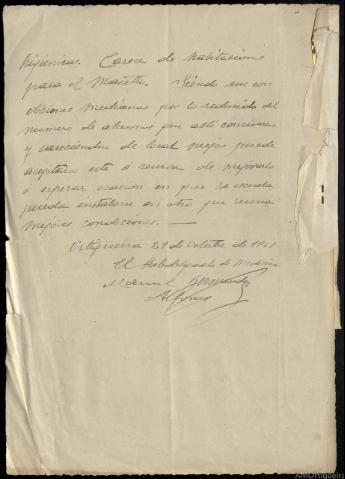 higiénicas. Carece de habitaciones
para el Maestro. Siendo sus con
diciones medianas por lo reducido del
numero de alumnos que alli concurren
y careciendose de local mejor puede
aceptarse este a reserva de mejorarlo
ó esperar ocasion en que la escuela
pueda instalarse en otro que reuna
mejores condiciones.
Ortigueira 29 de octubre de 1921
El Subdelegado de Medicina
Manuel Bermudez
Alfonso
AMOrtigueira